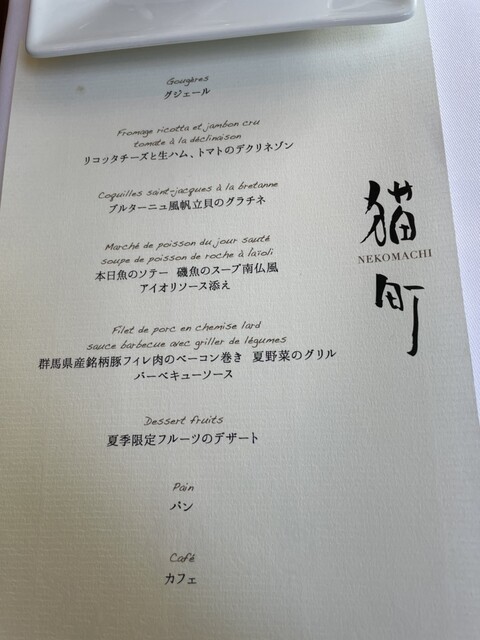 Gougères
グジェール
Fromage ricotta et jambon cru
tomate à la déclinaison
リコッタチーズと生ハム、トマトのデクリネゾン
Coquilles saint-jacques à la bretanne
ブルターニュ風帆立貝のグラチネ
Marché de poisson du jour sauté
soupe de poisson de roche à l'aïoli
本日魚のソテー 磯魚のスープ南仏風
アイオリソース添え
Filet de porc en chemise lard
sauce barbecue avec griller de légumes
群馬県産銘柄豚フィレ肉のベーコン巻き 夏野菜のグリル
バーベキューソース
Dessert fruits
夏季限定フルーツのデザート
Pain
パン
Café
カフェ
猫
NEKOMACHI
町